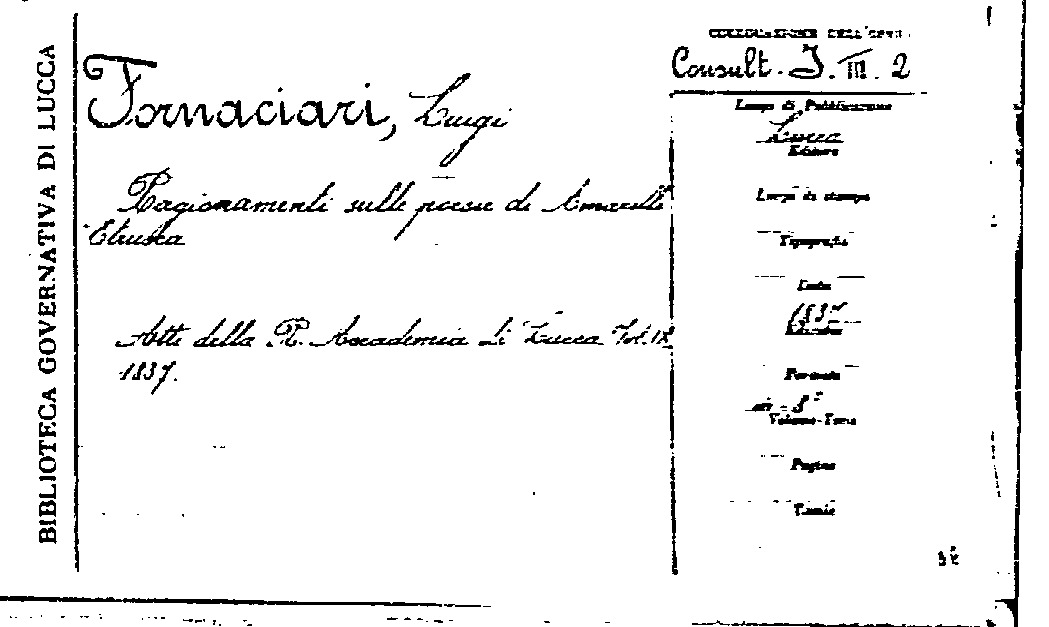 BIBLIOTECA GOVERNATIVA DI LUCCA
Fornaciari, Luigi
Ragionamenti sulle poesie di Amarilli
Etrusca
Atti della R. Accademia di Lucca Vol. IX
1837.
COLLOCAZIONE DELL'OPERA
Consult. J. III. 2
Luogo di Pubblicazione
Lucca
Editore
Luogo di stampa
Tipografia
Data
1837
Edizione
Formato
in-8°
Volume-Tomo
Pagine
Tavole